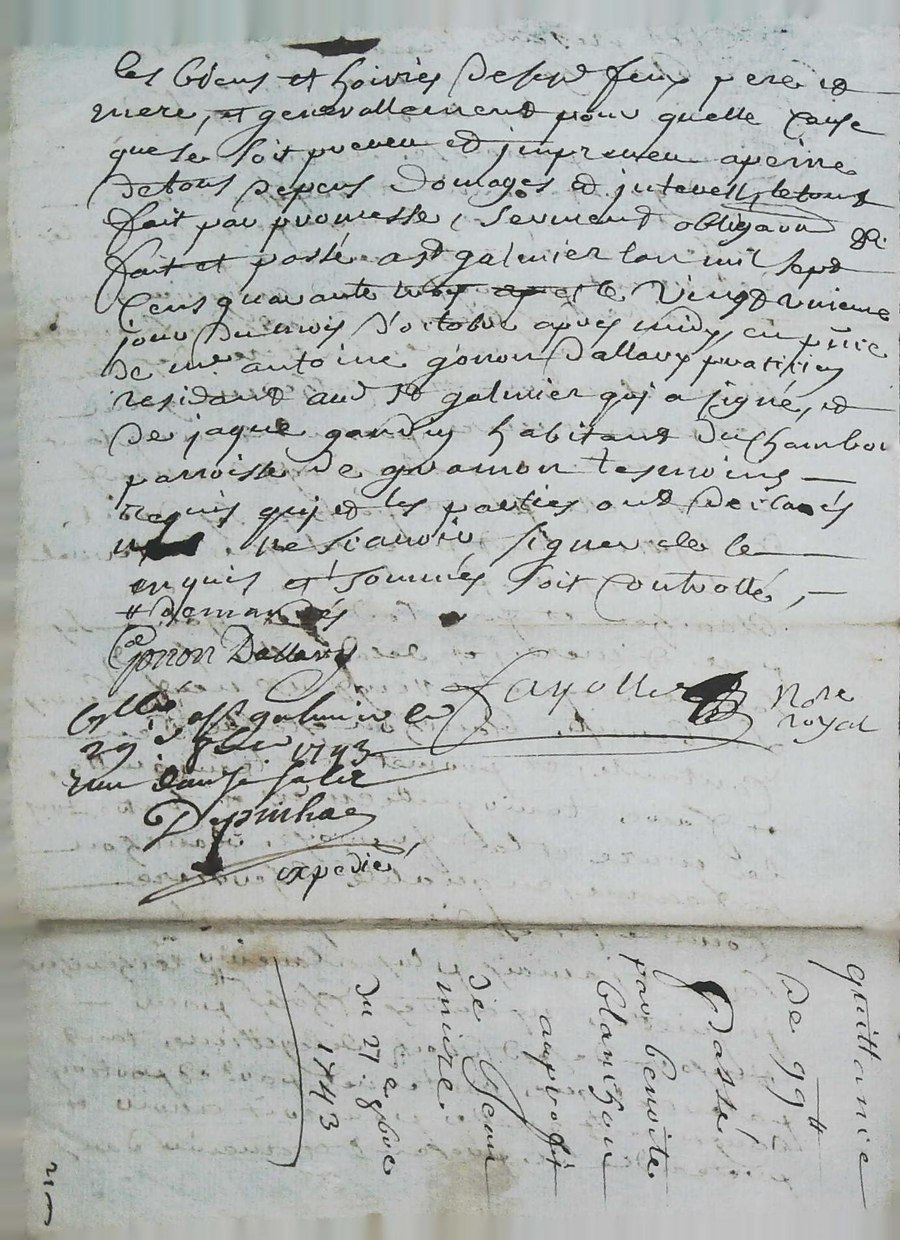 les biens et hoiries desesd feux pere et
mere, et generallement pour quelle cause
que ce soit preveu et impreveu apeine
de tous depens domages et interest, le tout
fait par promesse, serment obligaon &.
fait et passé a st galmier lan mil sept
cens quarante troy et le vingt unieme
jour du mois d'octobre apres midy, en pnce
de mr antoine gonon Dallary praticien
residant aud St galmier qui a signé, et
de jaque gardin habitant du Chambon
parroisse de gramon tesmoins
requis qui et les parties ont declarés
ne sçavoir signer de le
enquis et sommés soit controllé,
# demandés
Gonon Dallary
Fayolle Nore
royal
Cllé a st galmier le
29e 8bre 1743
Depinhac
expedié
quittance
de 99#
Passé
par benoite
blanchon
au profit
de Jean
mure
du 21e 8bre
1743